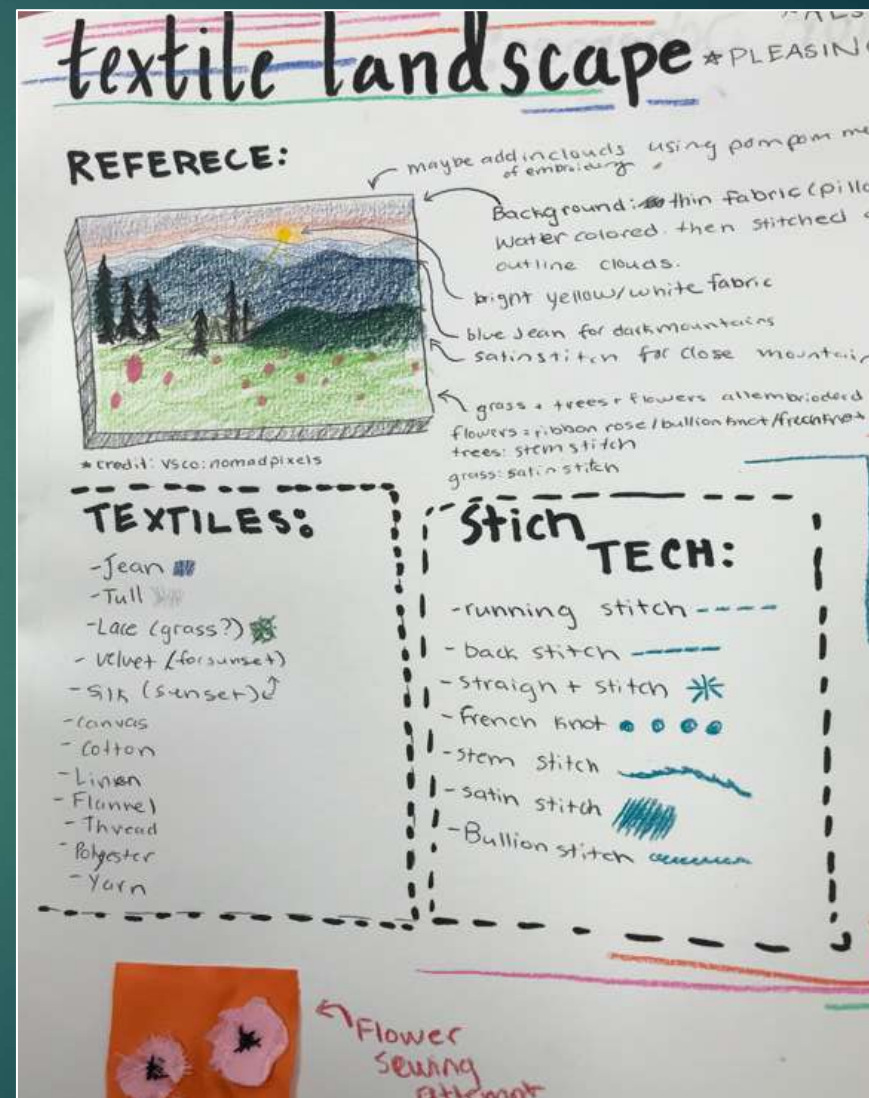 textile landscape
*PLEASING
REFERECE:
maybe add in clouds using pompom
of embroidery
Background: thin fabric
Water colored. then stitched
outline clouds.
bright yellow/white fabric
blue Jean for dark mountains
satin stitch for close
grass + trees + flowers all embrioderd
flowers = ribbon rose/bullion knot/french knot
trees: stem stitch
grass: satin stitch
*credit: vsco: nomadpixels
TEXTILES:
-Jean
-Tull
-Lace (grass?)
- velvet (for sunset)
- Silk (sunset)
-canvas
- Cotton
- Linen
- Flannel
- Thread
- Polyester
- Yarn
Stich
TECH:
-running stitch
- back stitch
- straight stitch
- french knot
- stem stitch
- satin stitch
- Bullion stitch
Flower
Sewing
attempt